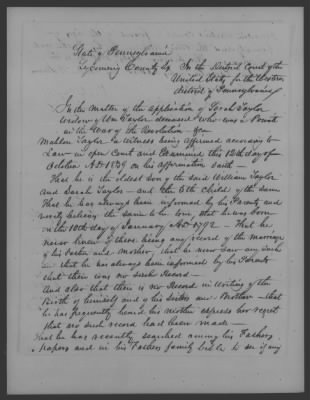 State of Pennsylvania
Lycoming County Ss In the District Court of the
United States for the Western
district of Pennsylvania
In the Matter of the application of Sarah Taylor
widow of Wm Taylor deceased who was a Private
in the War of the Revolution
Mallon Taylor a Witness being affirmed according to
Law in open Court and Examined this 12th day of
October AD 1839 on his affirmation saith —
That he is the eldest son of the said William Taylor
and Sarah Taylor — and the 5th child of the same
That he has always been informed by his Parents and
verily believes the same to be true, that he was born
on the 10th day of January AD 1792 — That he
never knew of there being any record of the marriage
of his Father and Mother, that he never saw any such
— that he has always been informed by his Parents
that there was no such Record —
And also that there is no Record in Writing of the
Birth of himself and of his sisters and Brother — that
he has frequently heard his mother express her regret
that no such record had been made —
That he has recently searched among his Fathers
papers and in his Fathers family bible to see if any